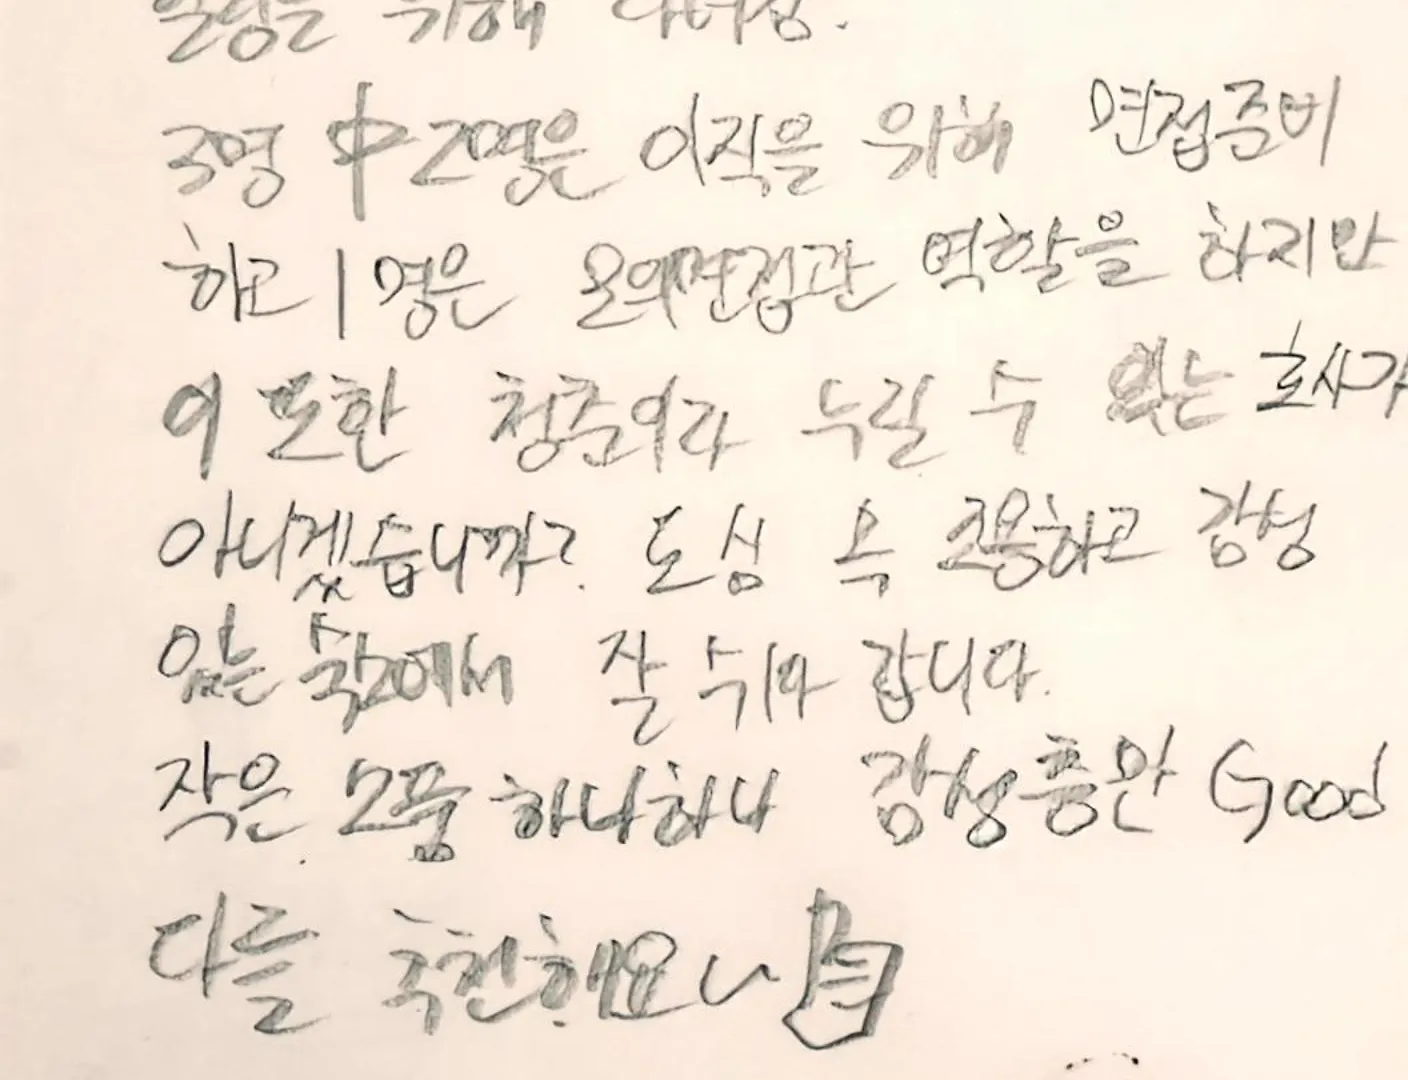 위해
3명 中 2명은 이직을 위해 면접준비
하고 1명은 모의면접관 역할을 하지만
이 또한 청춘이라 누릴 수 있는 호사가
아니겠습니까? 도심 속 조용하고 감성
있는 숙소에서 잘 쉬다 갑니다.
작은 소품 하나하나 감성충만 Good
다들 추천해요~